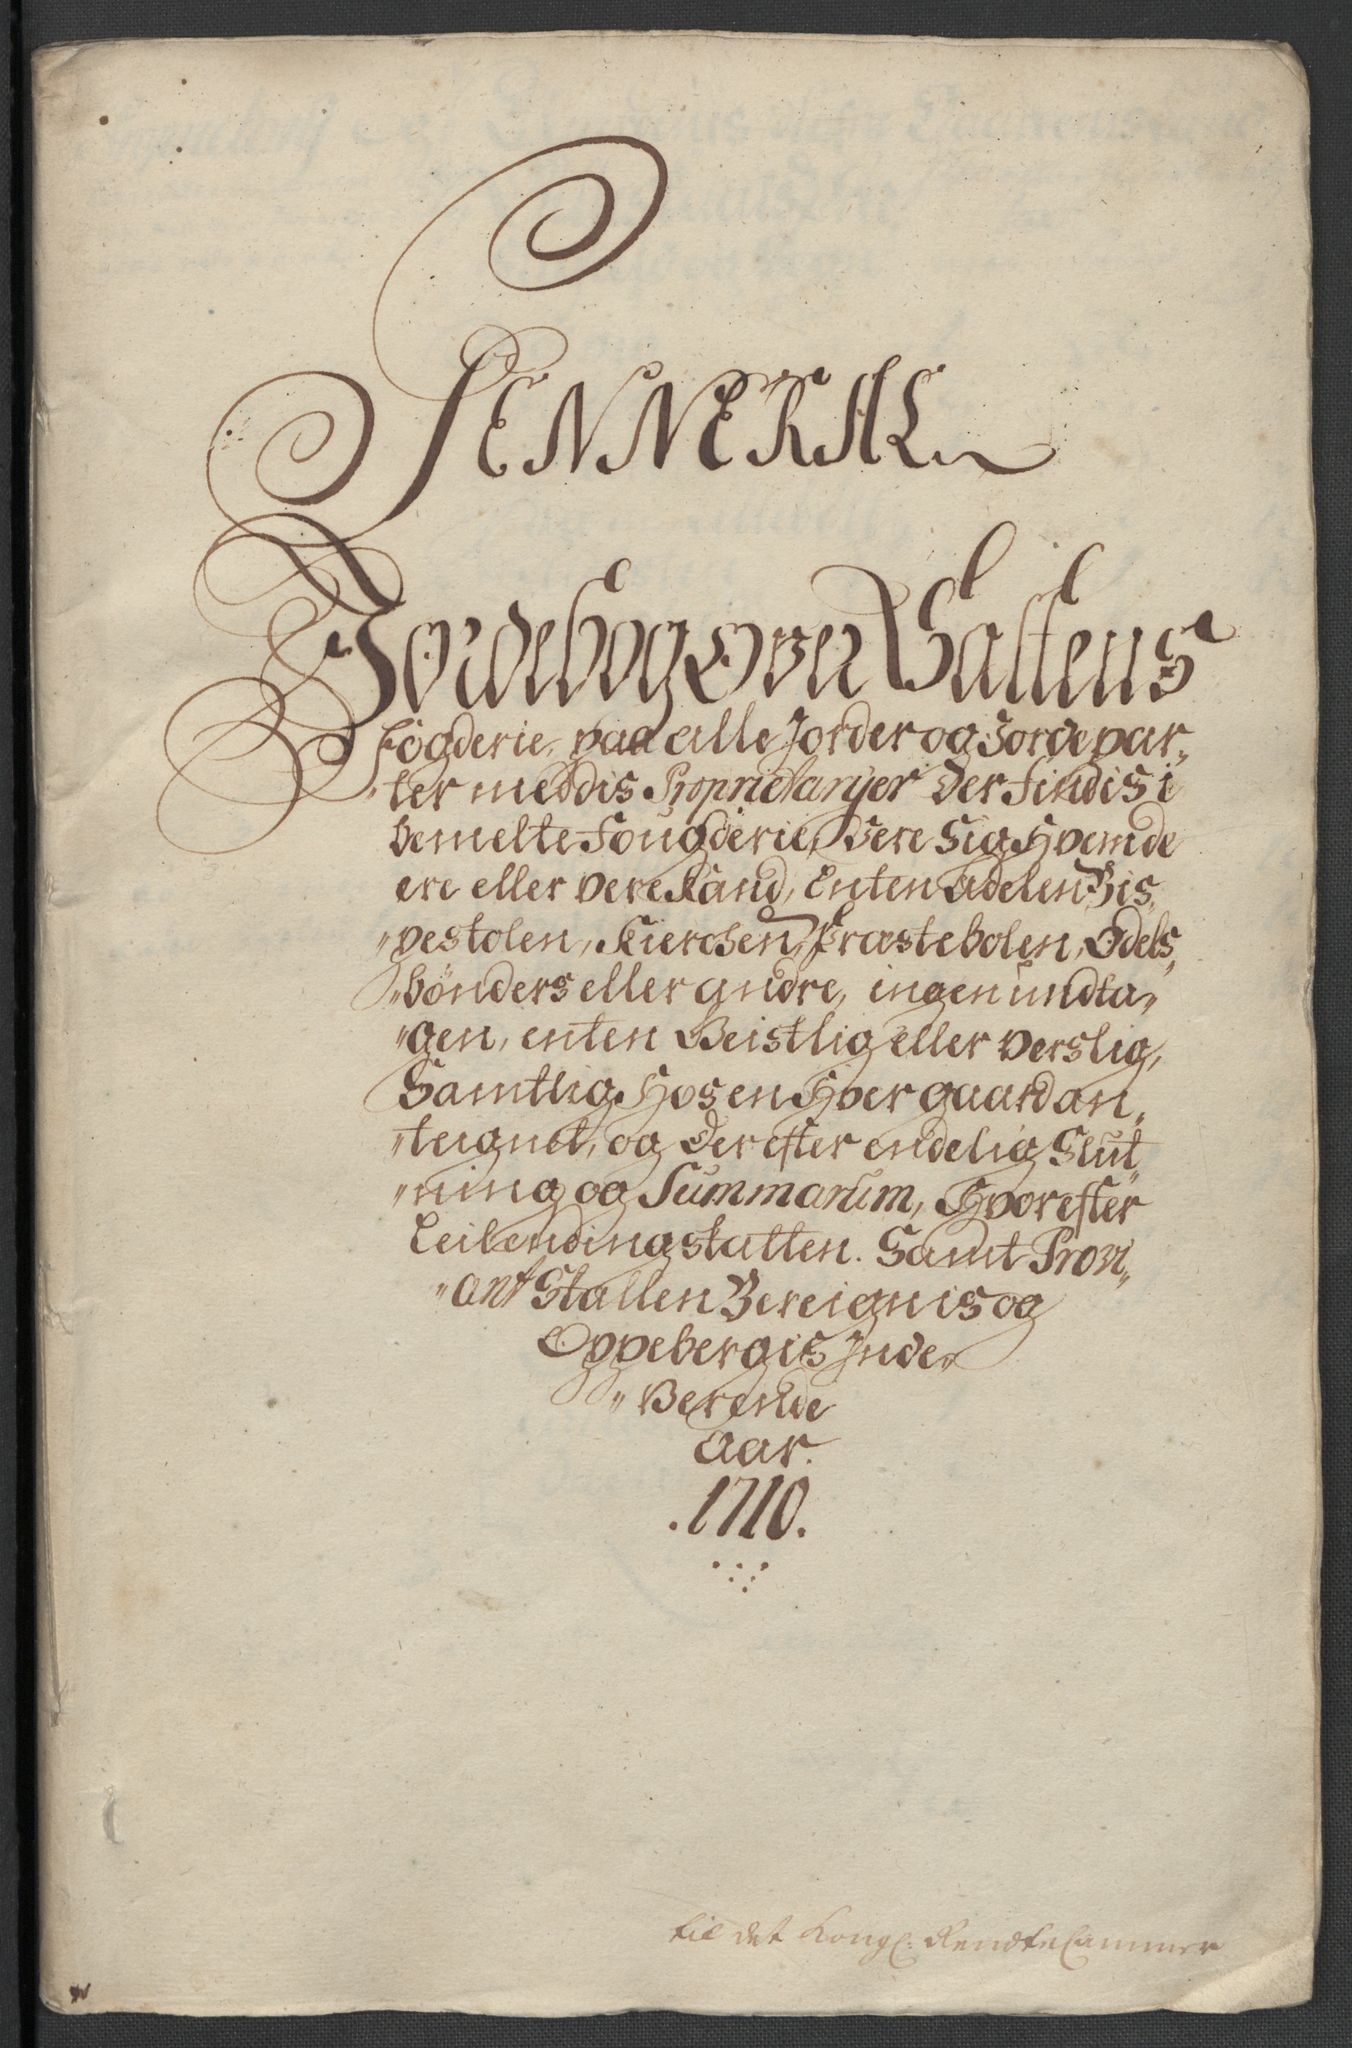 GENNERAL
Jordebog Over Saltens
fögderie, paa alle Jorder og Jorde par„
„ter med dis Proprietarijer der findis i
bemelte Fougderie, Vere sig Hvem de
ere eller vere Kand, Enten Adelen Bis„
„pestolen, Kierchen, Præstebolen, Odels„
„bönders eller andre, ingen undta„
„gen, enten Geistlig eller verslig,
Samtlig Hos en Hver gaard an„
„teignet, og derefter endelig Slut„
„ning og Summarum, Hvorefter
Leilendingskatten. Samt Provi„
„ant Skatten Bereignis og
Oppebergis Inde„
„Berende
Aar.
.1710.
til det Kongl: Rendte Cammer